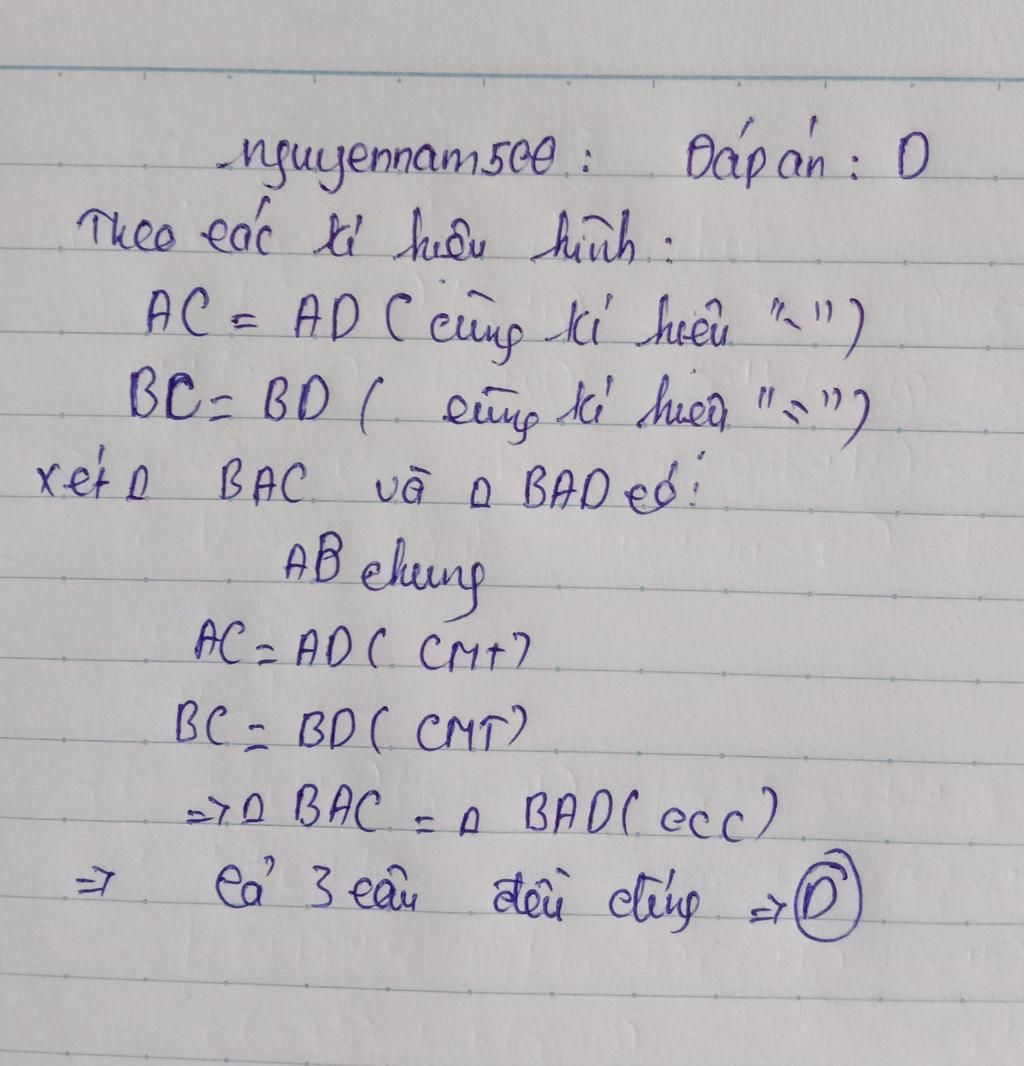 nguyennam500: Đáp án: D
Theo các kí hiệu hình:
AC = AD (cùng kí hiệu "-")
BC = BD ( cùng kí hiệu "=")
xét Δ BAC và Δ BAD có:
AB chung
AC = AD ( CMT)
BC = BD ( CMT)
=> Δ BAC = Δ BAD (ccc)
=> cả 3 câu đều đúng => D